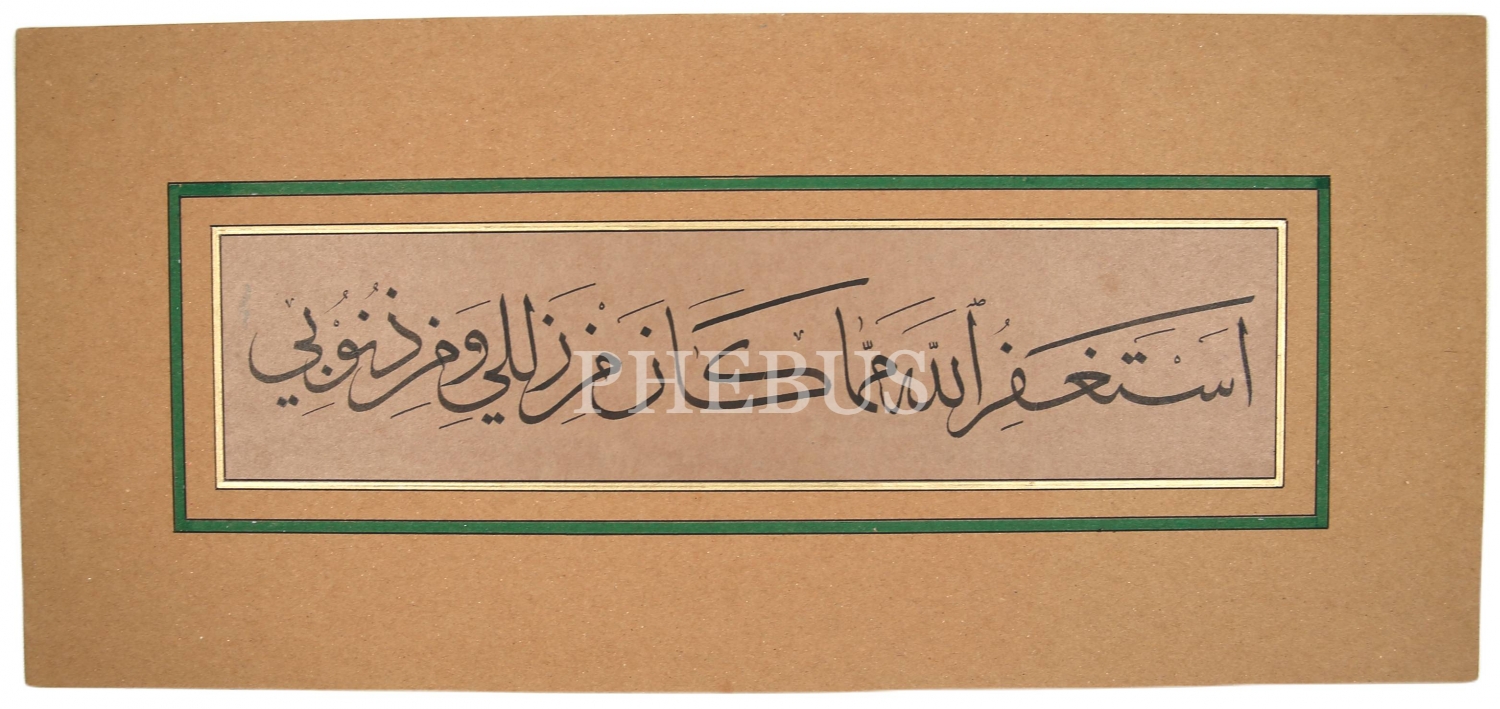 اَسْتَغْفِرُ ٱللّٰهَ مِمَّا كَانَ مِنْ زَلَلِي وَمِنْ ذُنُوْبِي
PHEBUS